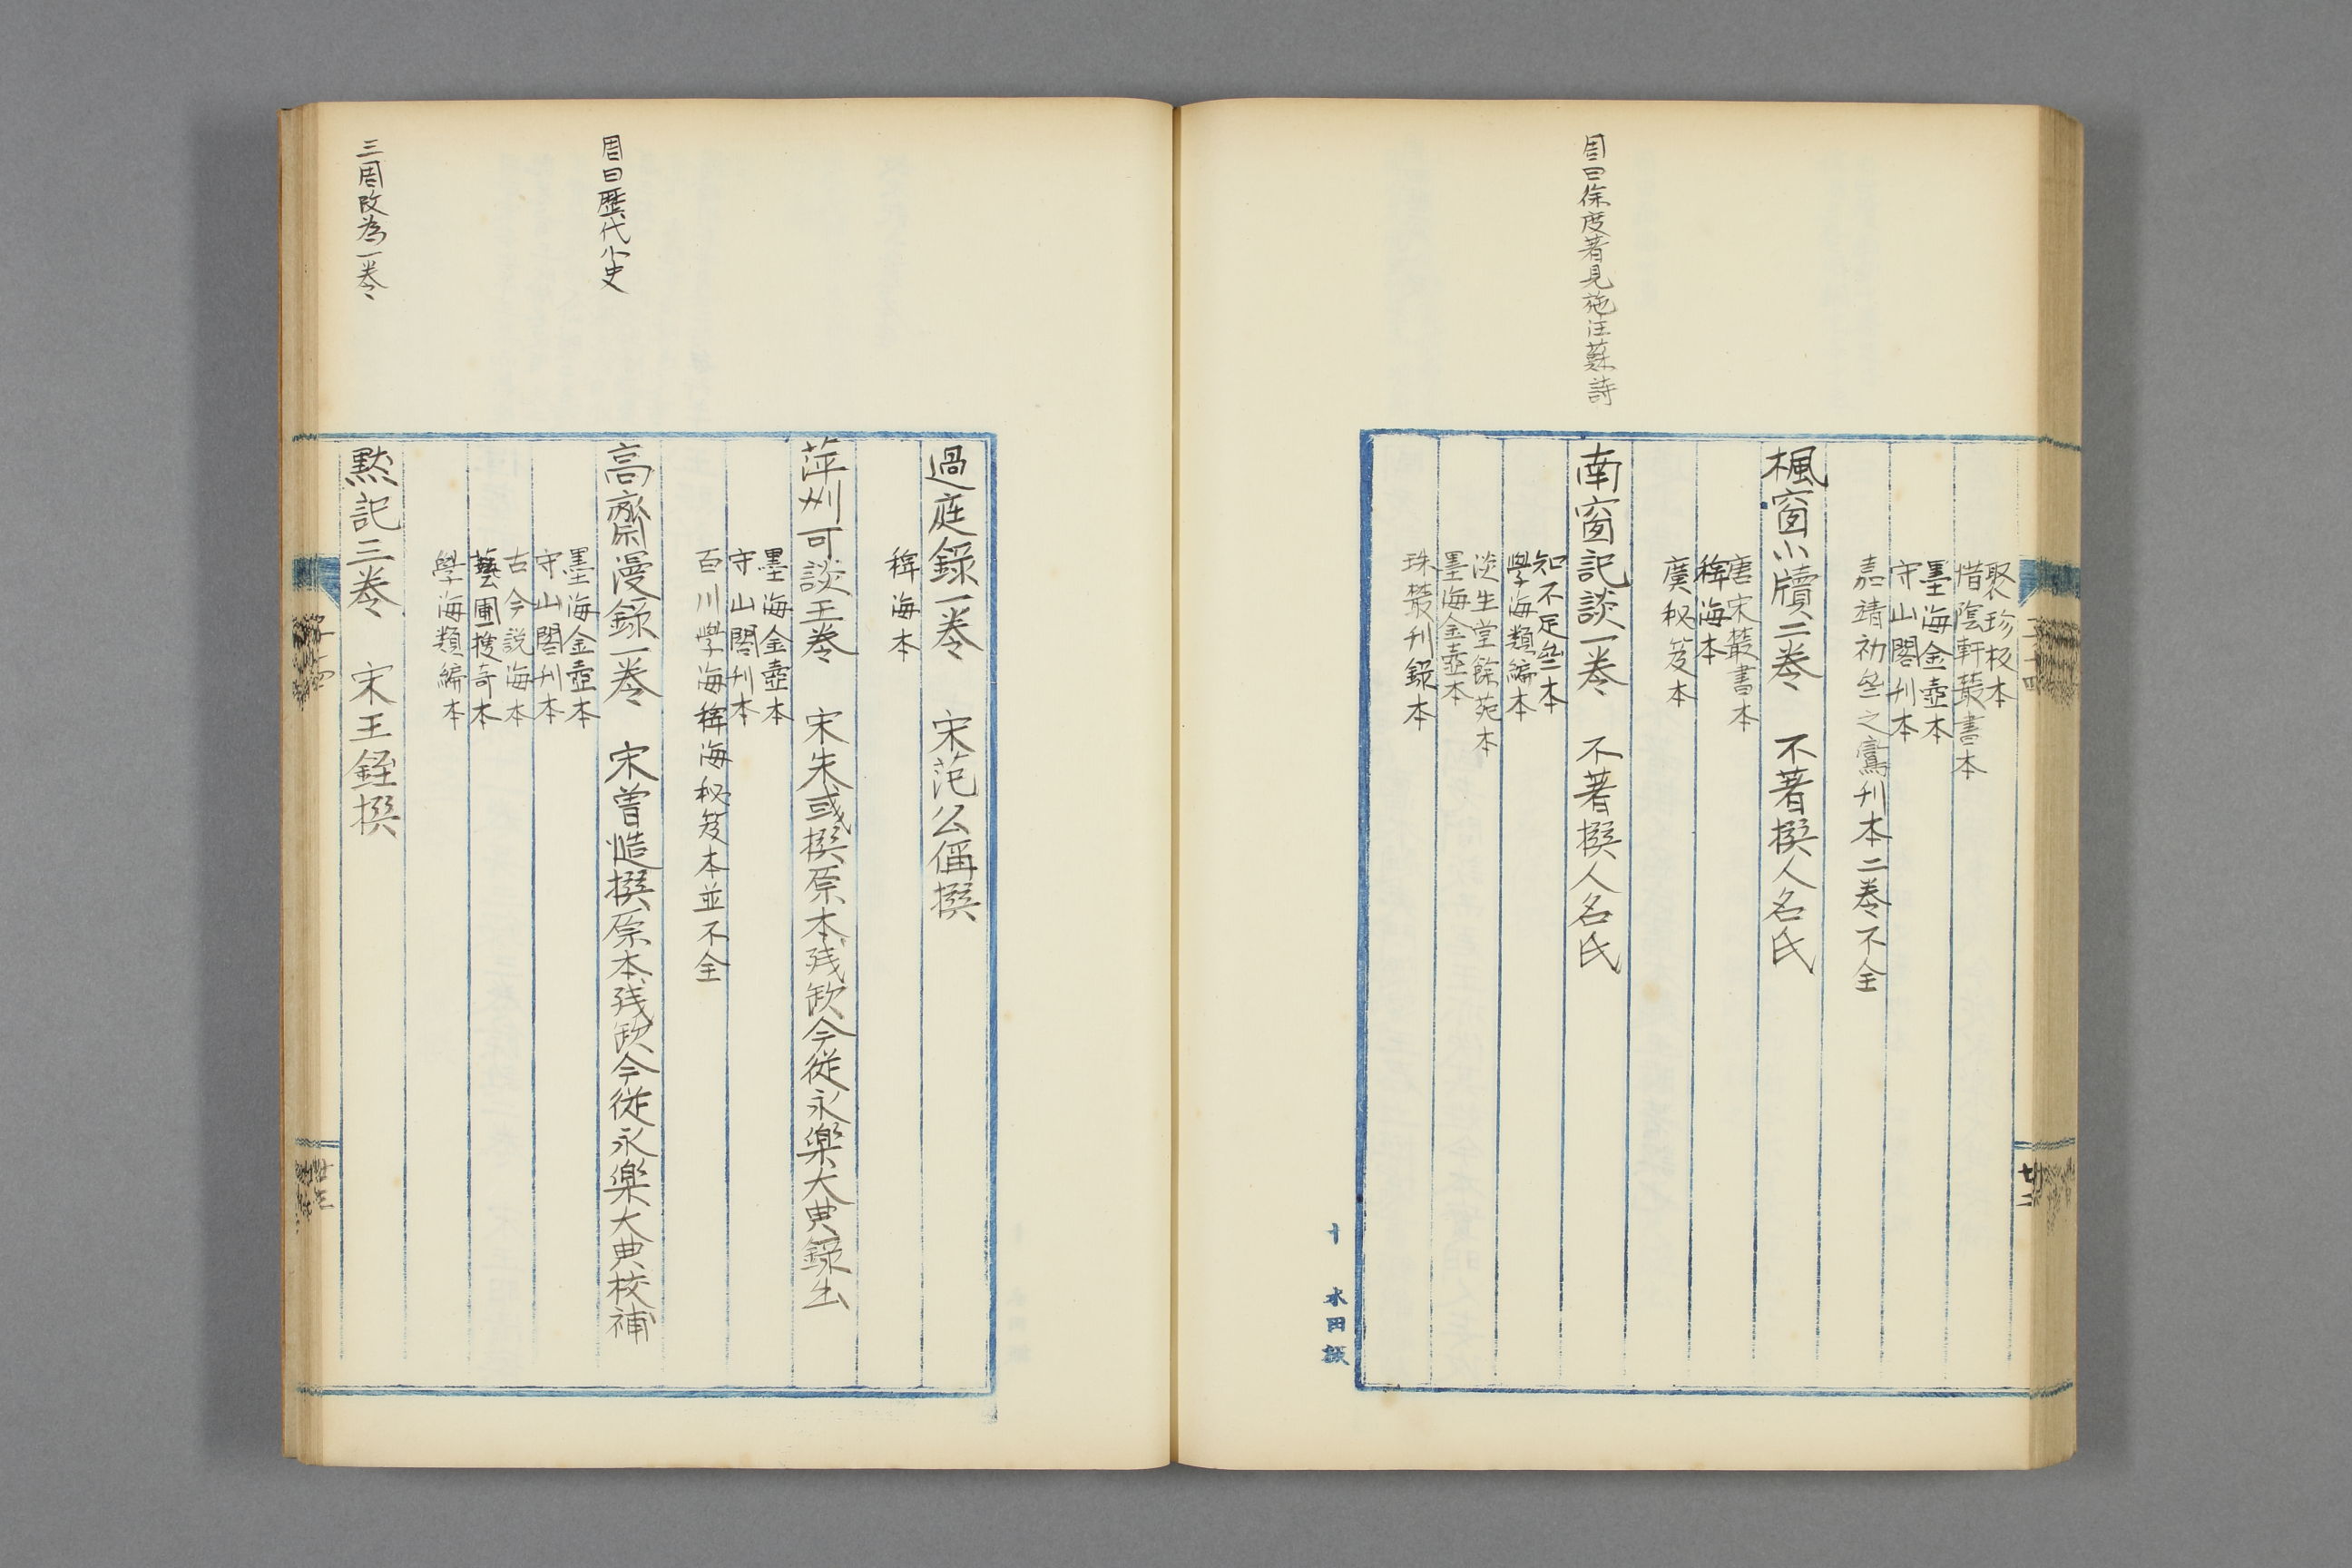 周曰徐度著見施注蘇詩
聚珍板本
惜陰軒叢書本
墨海金壺本
守山閣刊本
嘉靖初年之寫刊本二卷不全
楓窗小牘二卷　不著撰人名氏
唐宋叢書本
稗海本
廣秘笈本
南窗記談一卷　不著撰人名氏
知不足叁本
學海類編本
淡生堂餘苑本
墨海金壺本
珠叢刊錄本
十　水田掇
周曰歷代小史
三周改為一卷
過庭錄一卷　宋范公偁撰
稗海本
萍州可談三卷　宋朱彧撰原本残缺今從永樂大典錄出
墨海金壺本
守山閣刊本
百川學海稗海秘笈本並不全
高齋漫錄一卷　宋曾慥撰原本残缺今從永樂大典校補
墨海金壺本
守山閣刊本
古今說海本
藝圃搜奇本
學海類編本
默記三卷　宋王銍撰